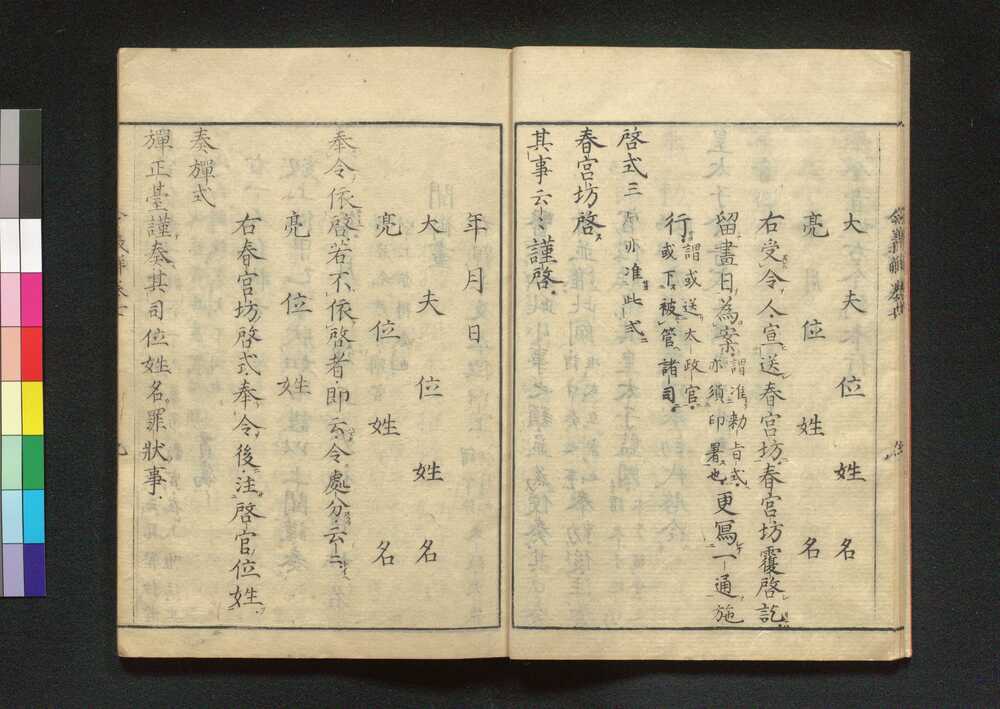 大夫位姓名
亮位姓名
右受令人宣送春宮坊春宮坊覆啓訖
留畫日為案謂准勅旨式亦須印署也更寫一通施
行謂或送太政官或下被管諸司
啓式三宮亦准此式
春宮坊啓
其事云々謹啓
年月日
大夫位姓名
亮位姓名
奉令依啓若不依啓者即云令處分云云
亮位姓
右春宮坊啓式奉令後注啓官位姓
奏彈式
彈正臺謹奏其司位姓名罪狀事